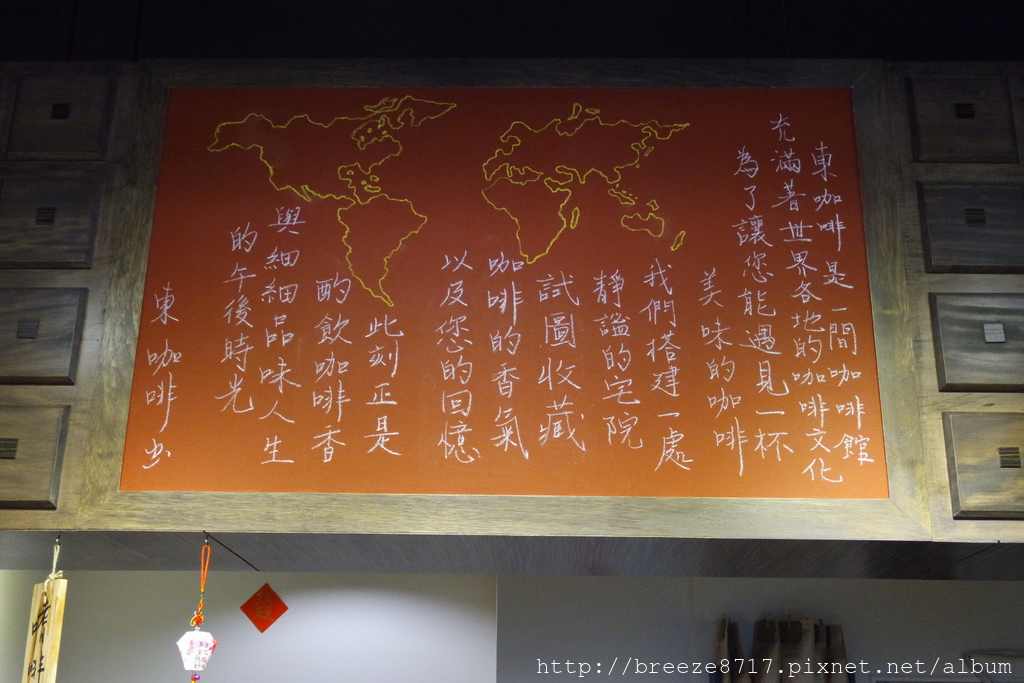 東咖啡是一間咖啡館
充滿著世界各地的咖啡文化
為了讓您能遇見一杯
美味的咖啡
我們搭建一處
靜謐的宅院
試圖收藏
咖啡的香氣
以及您的回憶
此刻正是
酌飲咖啡香
與細細品味人生
的午後時光
東咖啡
咖啡
http://breeze8717.pixnet.net/album